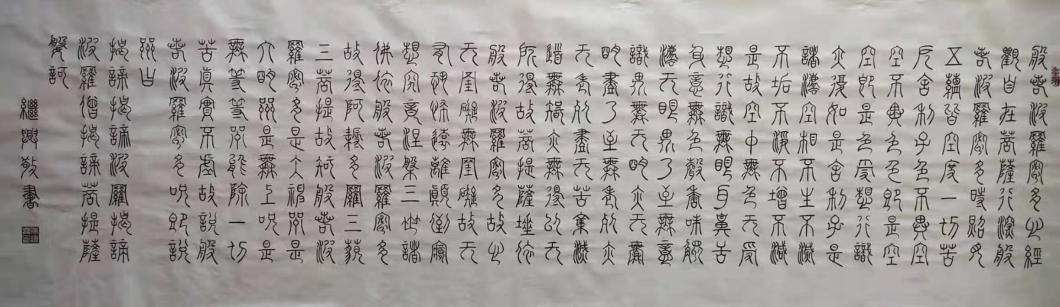 般若波羅密多心經
觀自在菩薩行深般
若波羅密多時照見
五蘊皆空度一切苦
厄舍利子色不異空
空不異色色即是空
空即是色受想行識
亦復如是舍利子是
諸法空相不生不滅
不垢不淨不增不減
是故空中無色无受
想行識無眼耳鼻舌
身意無色聲香味觸
法无眼界乃至無意
識界無无明亦无無
明盡乃至無老死亦
无老死盡无苦集滅
道無智亦無得以无
所得故菩提薩埵依
般若波羅密多故心
无罣礙無罣礙故无
有恐怖遠離顛倒夢
想究竟涅槃三世諸
佛依般若波羅密多
故得阿耨多羅三藐
三菩提故知般若波
羅密多是大神咒是
大明咒是無上咒是
無等等咒能除一切
苦真實不虛故說般
若波羅密多咒即說
咒曰
揭諦揭諦波羅揭諦
波羅僧揭諦菩提薩
婆訶
繼興敬書